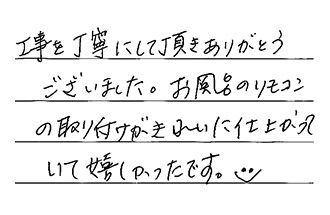 工事を丁寧にして頂きありがとう
ございました。お風呂のリモコン
の取り付けがきれいに仕上がって
いて嬉しかったです。